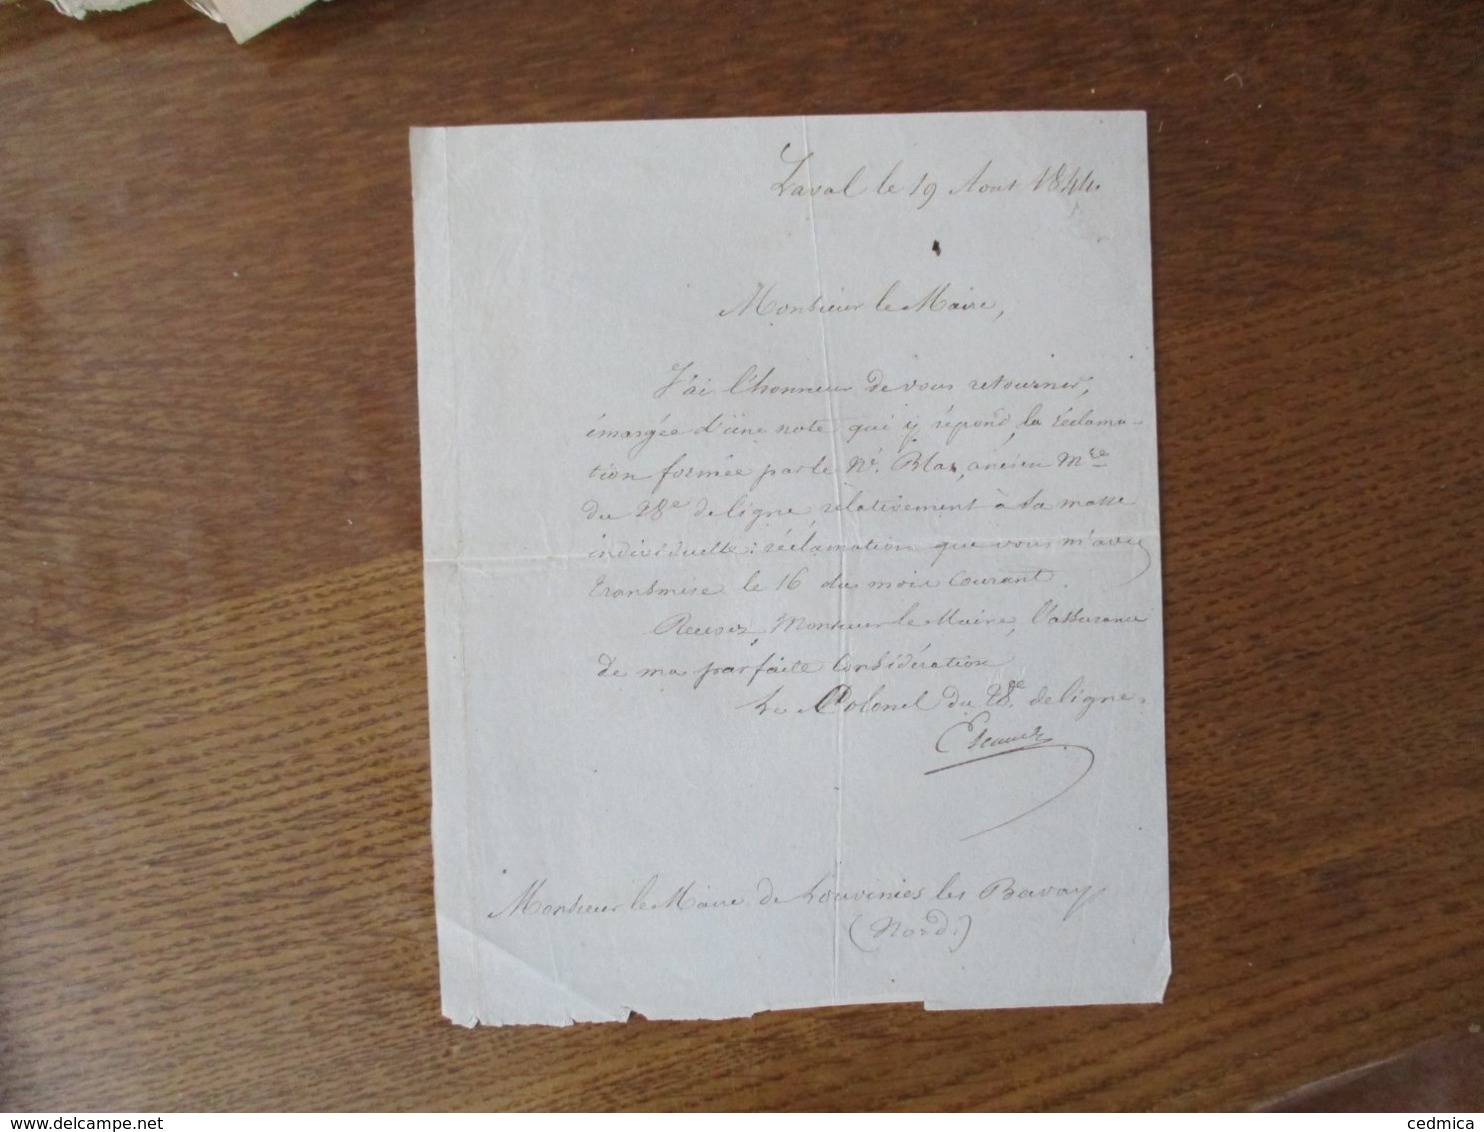 Laval le 19 Aout 1844.
Monsieur le Maire,
J'ai l'honneur de vous retourner,
émargée d'une note qui y répond, la réclama-
tion formée par le Né. Blas, ancien Mre
du 28e de ligne, relativement à sa masse
individuelle; réclamation que vous m'avez
transmise le 16 du mois courant.
Recevez, Monsieur le Maire, l'assurance
de ma parfaite considération
Le Colonel du 28e. de ligne.
Monsieur le Maire de Louvinies les Bavay
(Nord.)
cedmica